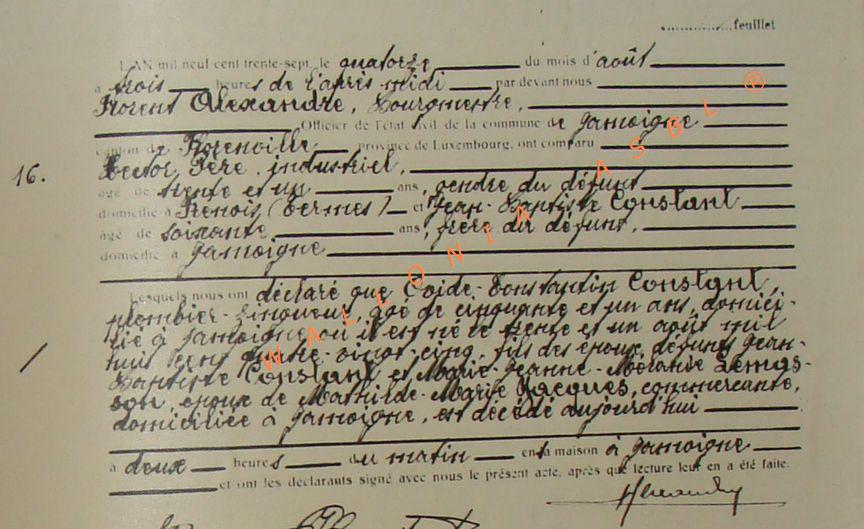 feuillet
L'AN mil neuf cent trente-sept, le quatorze du mois d'août
à trois heures de l'après-midi par devant nous
Florent Alexandre, Bourgmestre,
Officier de l'état civil de la commune de Jamoigne
canton de Florenville province de Luxembourg, ont comparu
Hector Père, industriel,
16. âgé de trente et un ans, gendre du défunt
domicilié à Frenois (Termes) et Jean-Baptiste Constant
âgé de soixante ans, frère du défunt,
domicilié à Jamoigne
Lesquels nous ont déclaré que Constantin Constant,
plombier-zingueur, âgé de cinquante et un ans, domici-
lié à Jamoigne où il est né le trente et un août mil
huit cent quatre-vingt-cinq, fils des époux défunts Jean-
Baptiste Constant et Marie-Jeanne-Mélanie Lemas-
son, époux de Mathilde-Marie Jacques, commerçante,
domiciliée à Jamoigne, est décédé aujourd'hui
à deux heures du matin en sa maison à Jamoigne
et ont les déclarants signé avec nous le présent acte, après que lecture leur en a été faite.
WALLONIA ASBL ®